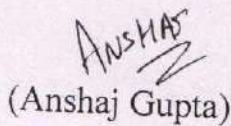 ANSHAJ
(Anshaj Gupta)